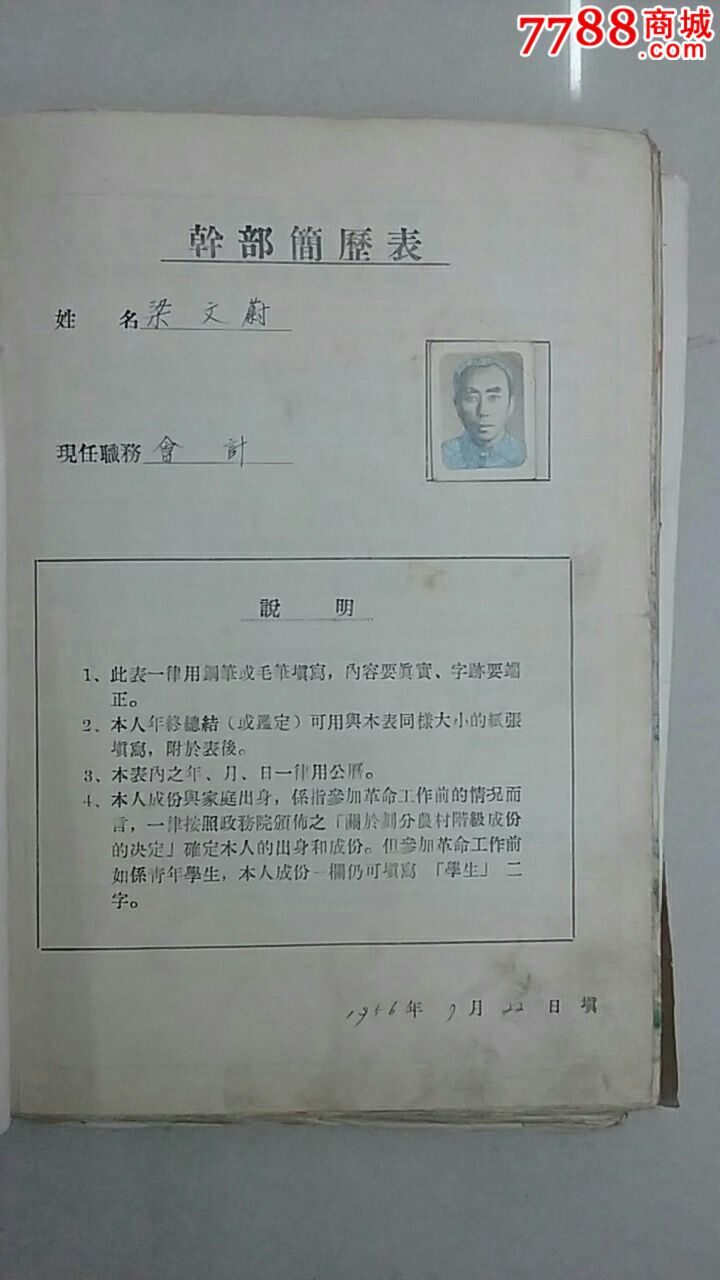 7788商城
.com
幹部簡歷表
姓 名 梁文蔚
現任職務 會 計
說 明
1、此表一律用鋼筆或毛筆填寫，內容要眞實、字跡要端
正。
2、本人年終總結（或鑑定）可用與本表同樣大小的紙張
填寫，附於表後。
3、本表內之年、月、日一律用公曆。
4、本人成份與家庭出身，係指參加革命工作前的情况而
言，一律按照政務院頒佈之「關於劃分農村階級成份
的决定」確定本人的出身和成份。但參加革命工作前
如係靑年學生，本人成份一欄仍可填寫「學生」二
字。
1956年 7月 22日 填